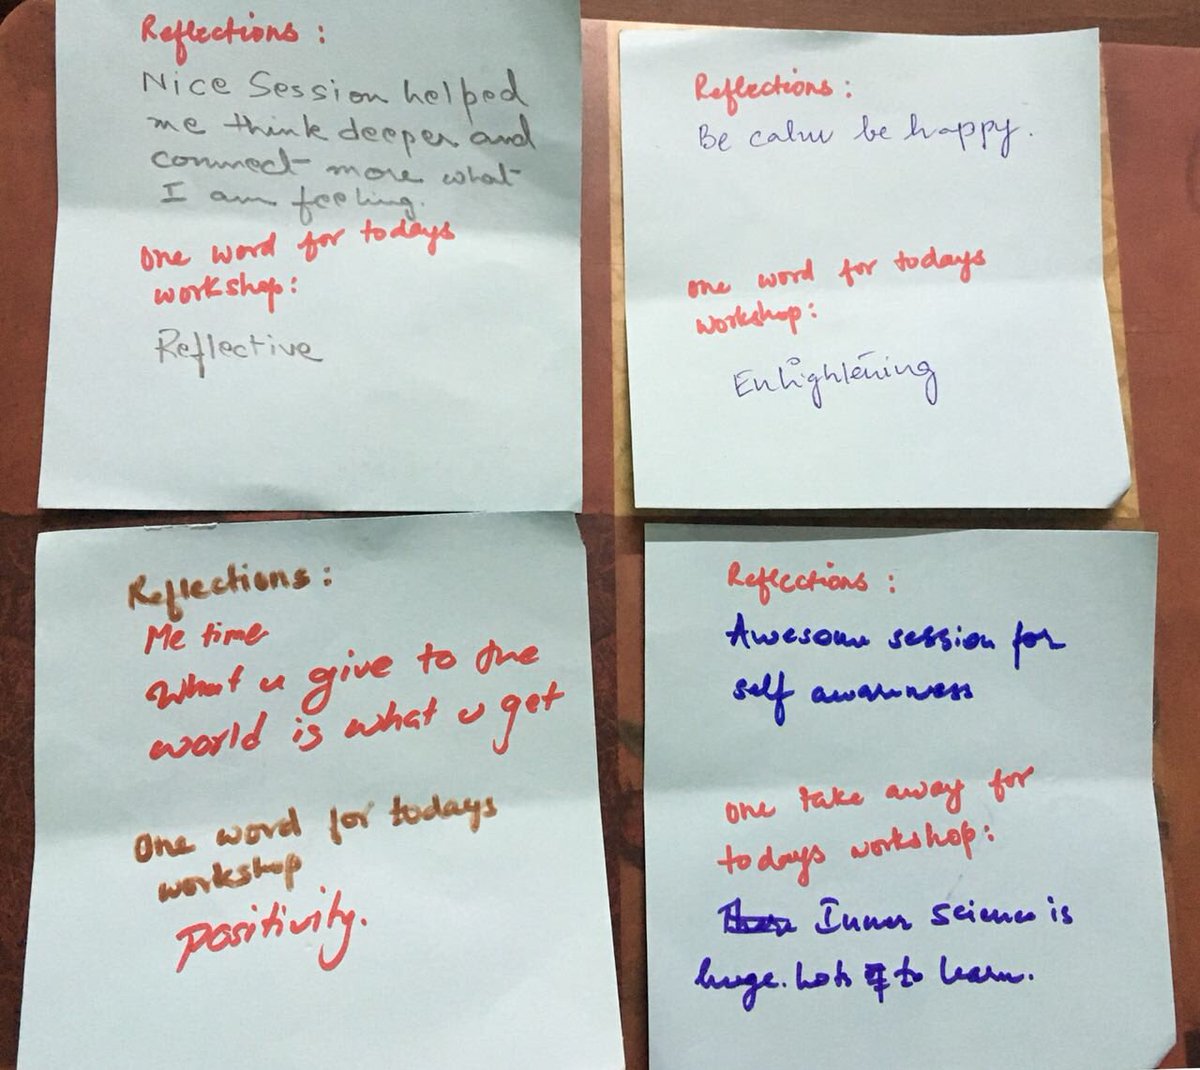 Reflections :
Nice Session helped
me think deeper and
connect more what
I am feeling.
One word for todays
workshop:
Reflective
Reflections :
Be calm be happy.
one word for todays
workshop:
Enlightening
Reflections :
Me time
What u give to the
world is what u get
One word for todays
workshop
positivity.
Reflections :
Awesome session for
self awareness
one take away for
todays workshop:
Inner Science is
huge. Lots to learn.